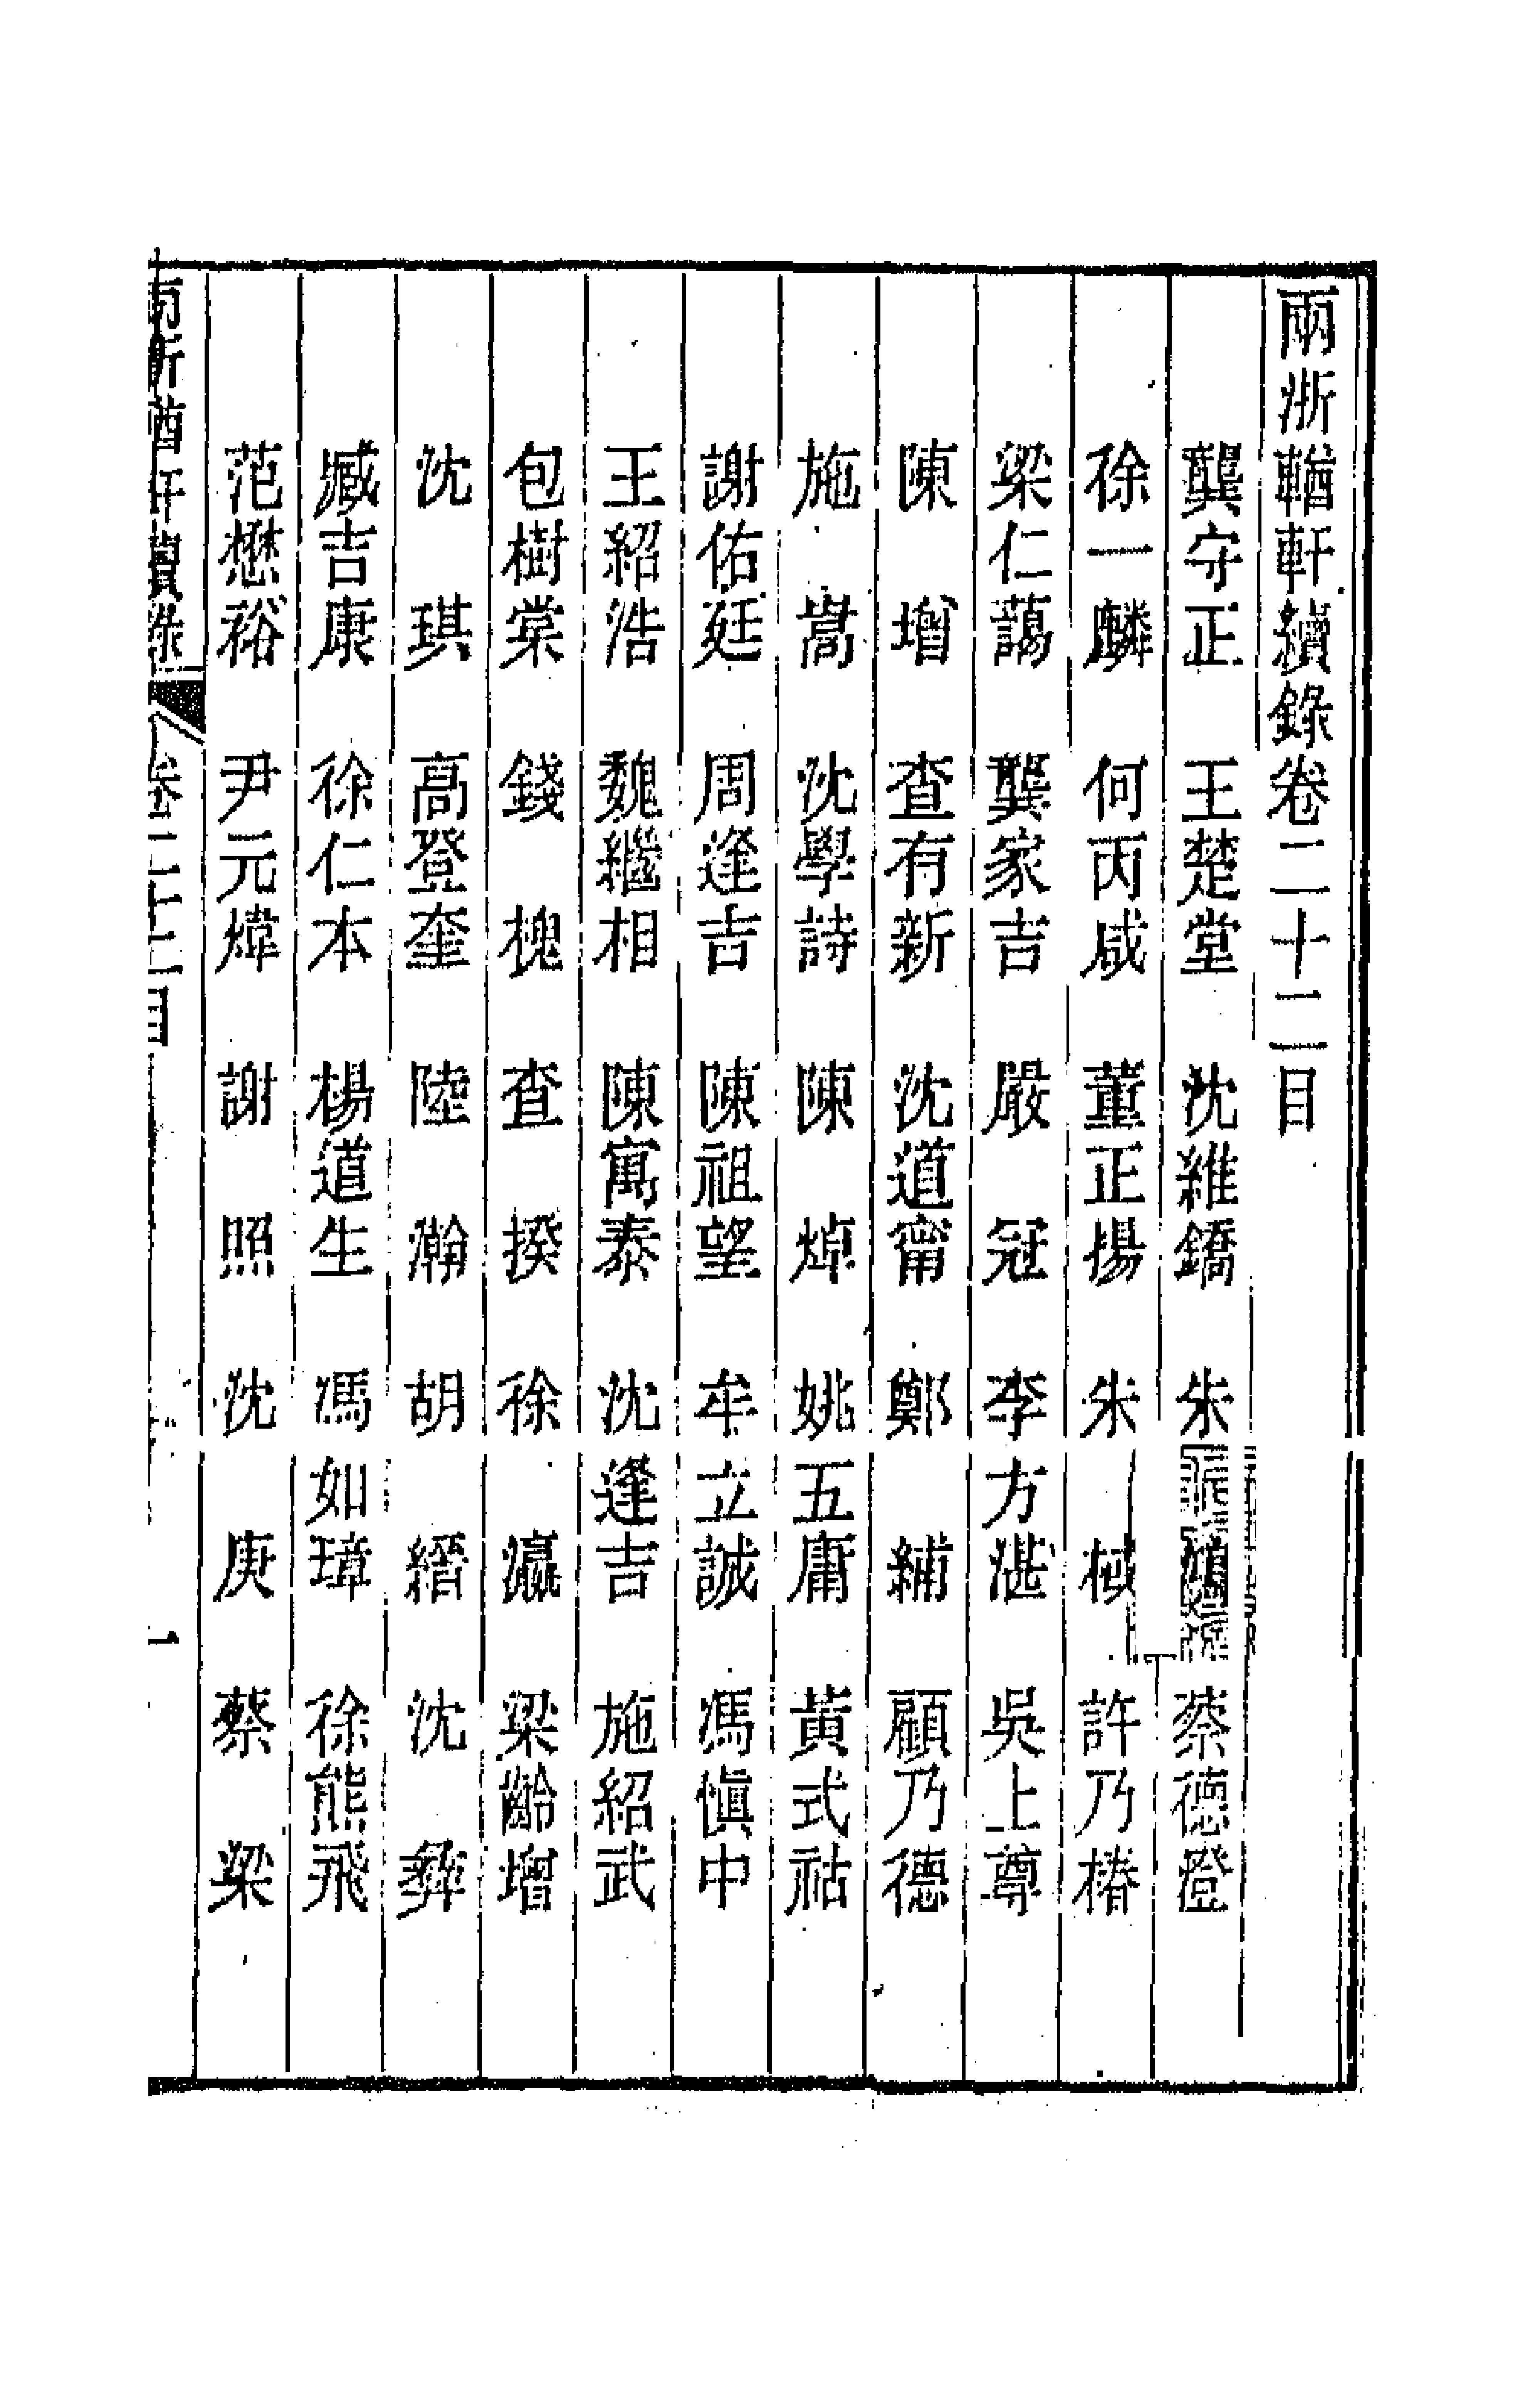 兩浙輶軒續錄卷二十二目
龔守正　王楚堂　沈維鐈　朱　蔡德澄
徐一麟　何丙咸　董正揚　朱棫　許乃椿
梁仁藹　龔家吉　嚴冠　李方湛　吳上尊
陳增　查有新　沈道甯　鄭繡　顧乃德
施嵩　沈學詩　陳焯　姚五庸　黃式祜
謝佑廷　周逢吉　陳祖望　牟立誠　馮愼中
王紹浩　魏繼相　陳寓泰　沈逢吉　施紹武
包樹棠　錢槐　查揆　徐瀛　梁齡增
沈琪　高登奎　陸瀚　胡縉　沈彝
臧吉康　徐仁本　楊道生　馮如璋　徐熊飛
范懋裕　尹元煒　謝照　沈庚　蔡梁
兩浙輶軒續錄　卷二十二目　一